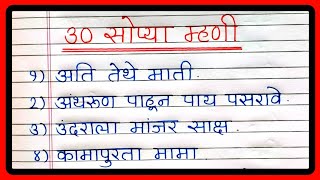 ३० सोप्या म्हणी
१) अति तेथे माती.
२) अंथरूण पाहून पाय पसरावे.
३) उंदराला मांजर साक्ष.
४) कामापुरता मामा